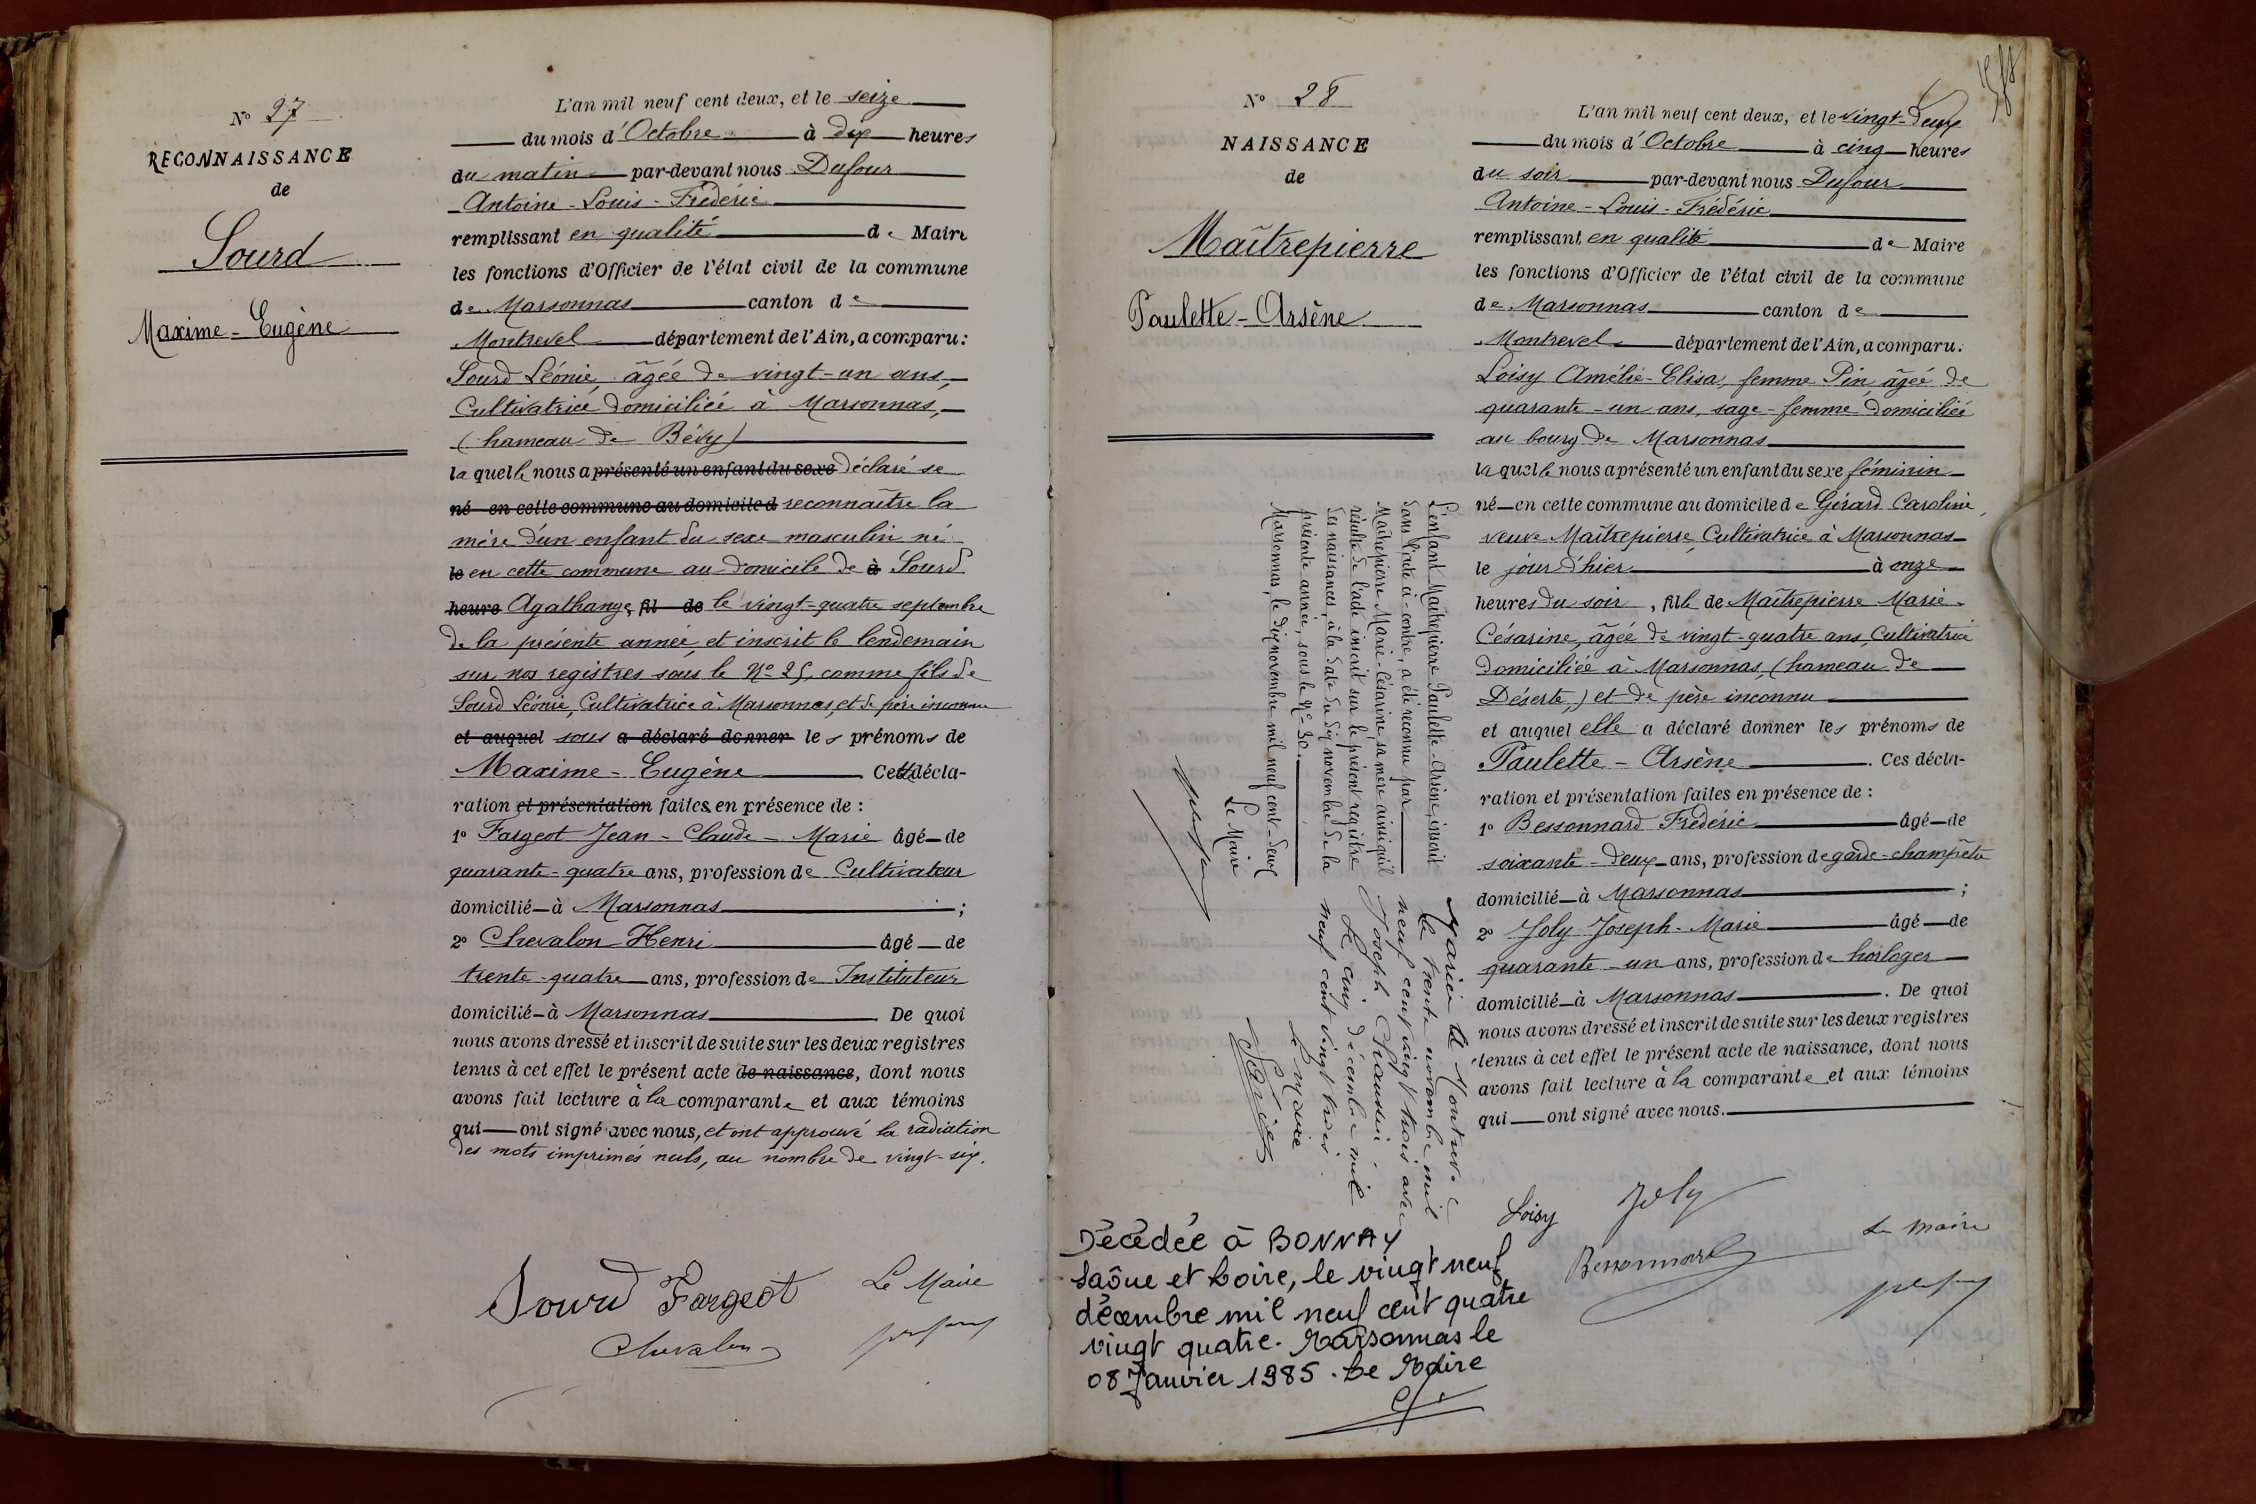 N° 27
RECONNAISSANCE
de
Sourd
Maxime - Eugène
L'an mil neuf cent deux, et le seize
du mois d'Octobre à dix heures
du matin par-devant nous Dufour
Antoine - Louis - Frédéric
remplissant en qualité de Maire
les fonctions d'Officier de l'état civil de la commune
de Marsonnas canton de
Montrevel département de l'Ain, a comparu:
Sourd Léonie, âgée de vingt-un ans,
Cultivatrice domiciliée à Marsonnas,
(hameau de Bévy)
laquelle nous a présenté un enfant du sexe déclaré se
né en cette commune au domicile d reconnaître la
mère d'un enfant du sexe masculin né
le en cette commune au domicile de à Sourd
heure Agathange, fil de le vingt-quatre septembre
de la présente année, et inscrit le lendemain
sur nos registres sous le N° 25, comme fils de
Sourd Léonie, Cultivatrice à Marsonnas, et de père inconnu
et auquel sous a déclaré donner les prénoms de
Maxime - Eugène Cette décla-
ration et présentation faites en présence de :
1° Fargeot Jean - Claude - Marie âgé de
quarante-quatre ans, profession de Cultivateur
domicilié à Marsonnas ;
2° Chevalon Henri âgé de
trente-quatre ans, profession de Instituteur
domicilié à Marsonnas. De quoi
nous avons dressé et inscrit de suite sur les deux registres
tenus à cet effet le présent acte de naissance, dont nous
avons fait lecture à la comparante et aux témoins
qui ont signé avec nous, et ont approuvé la radiation
des mots imprimés nuls, au nombre de vingt-six.
Sourd Fargeot Le Maire
Chevalon
N° 28
NAISSANCE
de
Maîtrepierre
Paulette - Arsène
L'an mil neuf cent deux, et le vingt-deux
du mois d'Octobre à cinq heures
du soir par-devant nous Dufour
Antoine - Louis - Frédéric
remplissant en qualité de Maire
les fonctions d'Officier de l'état civil de la commune
de Marsonnas canton de
Montrevel département de l'Ain, a comparu:
Loisy Amélie-Elisa, femme Pin, âgée de
quarante-un ans, sage-femme domiciliée
au bourg de Marsonnas
laquelle nous a présenté un enfant du sexe féminin
né en cette commune au domicile de Gérard Caroline,
veuve Maîtrepierre, Cultivatrice à Marsonnas
le jour d'hier à onze
heures du soir, fille de Maîtrepierre Marie-
Césarine, âgée de vingt-quatre ans, Cultivatrice
domiciliée à Marsonnas, (hameau de
Déserte,) et de père inconnu
et auquel elle a déclaré donner les prénoms de
Paulette - Arsène. Ces décla-
ration et présentation faites en présence de :
1° Bessonnard Frédéric âgé de
soixante-deux ans, profession de garde-champêtre
domicilié à Marsonnas ;
2° Joly Joseph-Marie âgé de
quarante-un ans, profession de horloger
domicilié à Marsonnas. De quoi
nous avons dressé et inscrit de suite sur les deux registres
tenus à cet effet le présent acte de naissance, dont nous
avons fait lecture à la comparante et aux témoins
qui ont signé avec nous.
Loisy Joly
Bessonnard Le Maire
L'enfant Maîtrepierre Paulette-Arsène, inscrit
dans l'acte ci-contre, a été reconnu par
Maîtrepierre Marie-Césarine, sa mère ainsi qu'il
résulte de l'acte inscrit sur le présent registre
des naissances, à la date du dix novembre de la
présente année, sous le N° 30.
Marsonnas, le dix novembre mil neuf cent-deux
Le Maire
Mariée à Montrevel
le trente novembre mil
neuf cent vingt trois avec
Joseph Chaussin.
Le cinq décembre mil
neuf cent vingt trois.
Le Maire
Décédée à BONNAY
Saône et Loire, le vingt neuf
décembre mil neuf cent quatre
vingt quatre. Marsonnas le
08 Janvier 1985. Le Maire